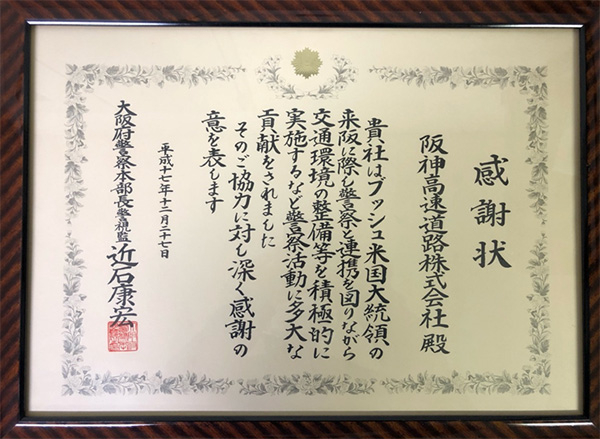 感謝状
阪神高速道路株式会社殿
貴社はブッシュ米国大統領の
来阪に際し警察と連携を図りながら
交通環境の整備等を積極的に
実施するなど警察活動に多大な
貢献をされました
そのご協力に対し深く感謝の
意を表します
平成十七年十二月二十七日
大阪府警察本部長警視監 近石康宏